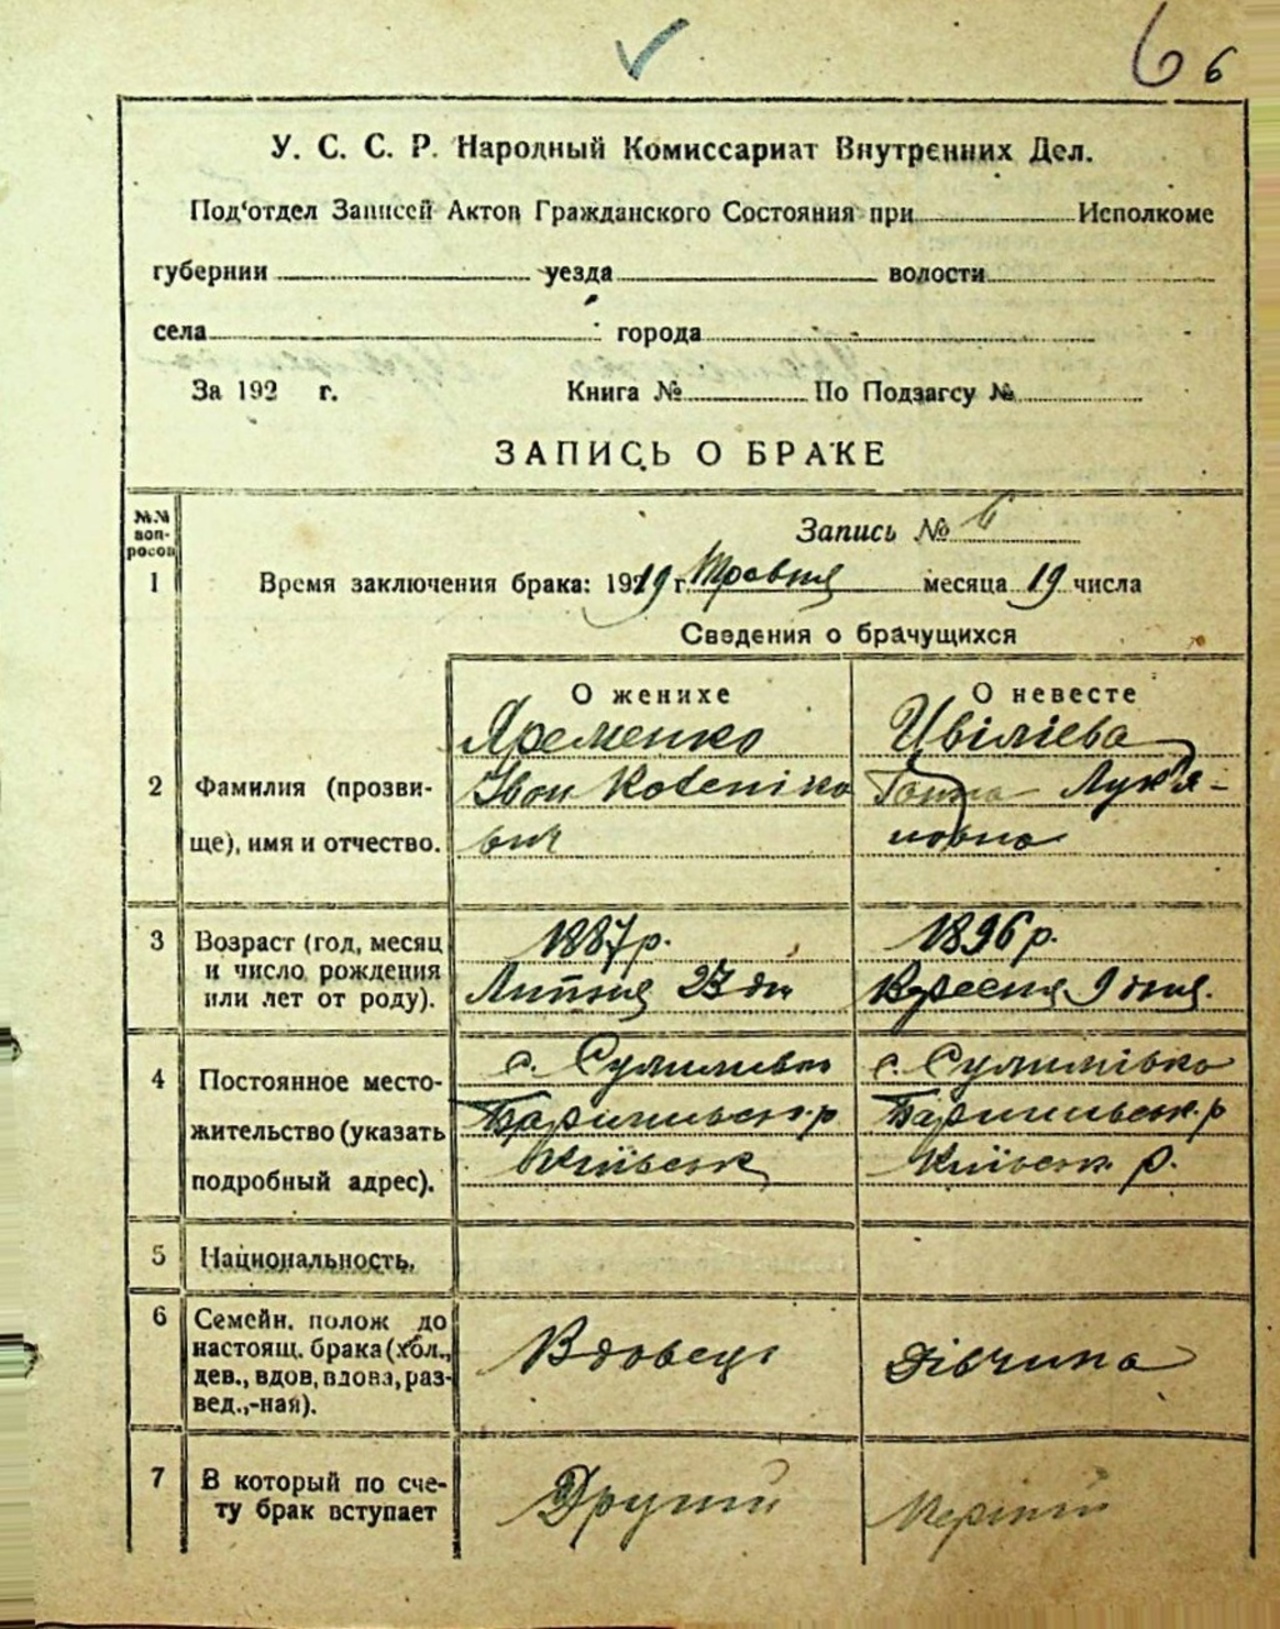 6 6
У. С. С. Р. Народный Комиссариат Внутренних Дел.
Под'отдел Записей Актов Гражданского Состояния при Исполкоме
губернии уезда волости
села города
За 192 г. Книга № По Подзагсу №
ЗАПИСЬ О БРАКЕ
№№ вопросов
Запись № 6
1 Время заключения брака: 1919 г. Травня месяца 19 числа
Сведения о брачущихся
О женихе О невесте
Яременко Цвілієва
2 Фамилия (прозви- Іван Ганна Лук'я-
ще), имя и отчество. вич новна
3 Возраст (год, месяц 1887 р. 1896 р.
и число рождения Липня 23 дн Вересня 9 дня.
или лет от роду).
4 Постоянное место- с. Сулимівка с. Сулимівка
жительство (указать Баришівськ. р Баришівськ. р
подробный адрес). Київськ Київськ. р.
5 Национальность.
6 Семейн. полож до
настоящ. брака (хол., Вдовець дівчина
дев., вдов, вдова, раз-
вед.,-ная).
7 В который по сче- Другий Перший
ту брак вступает